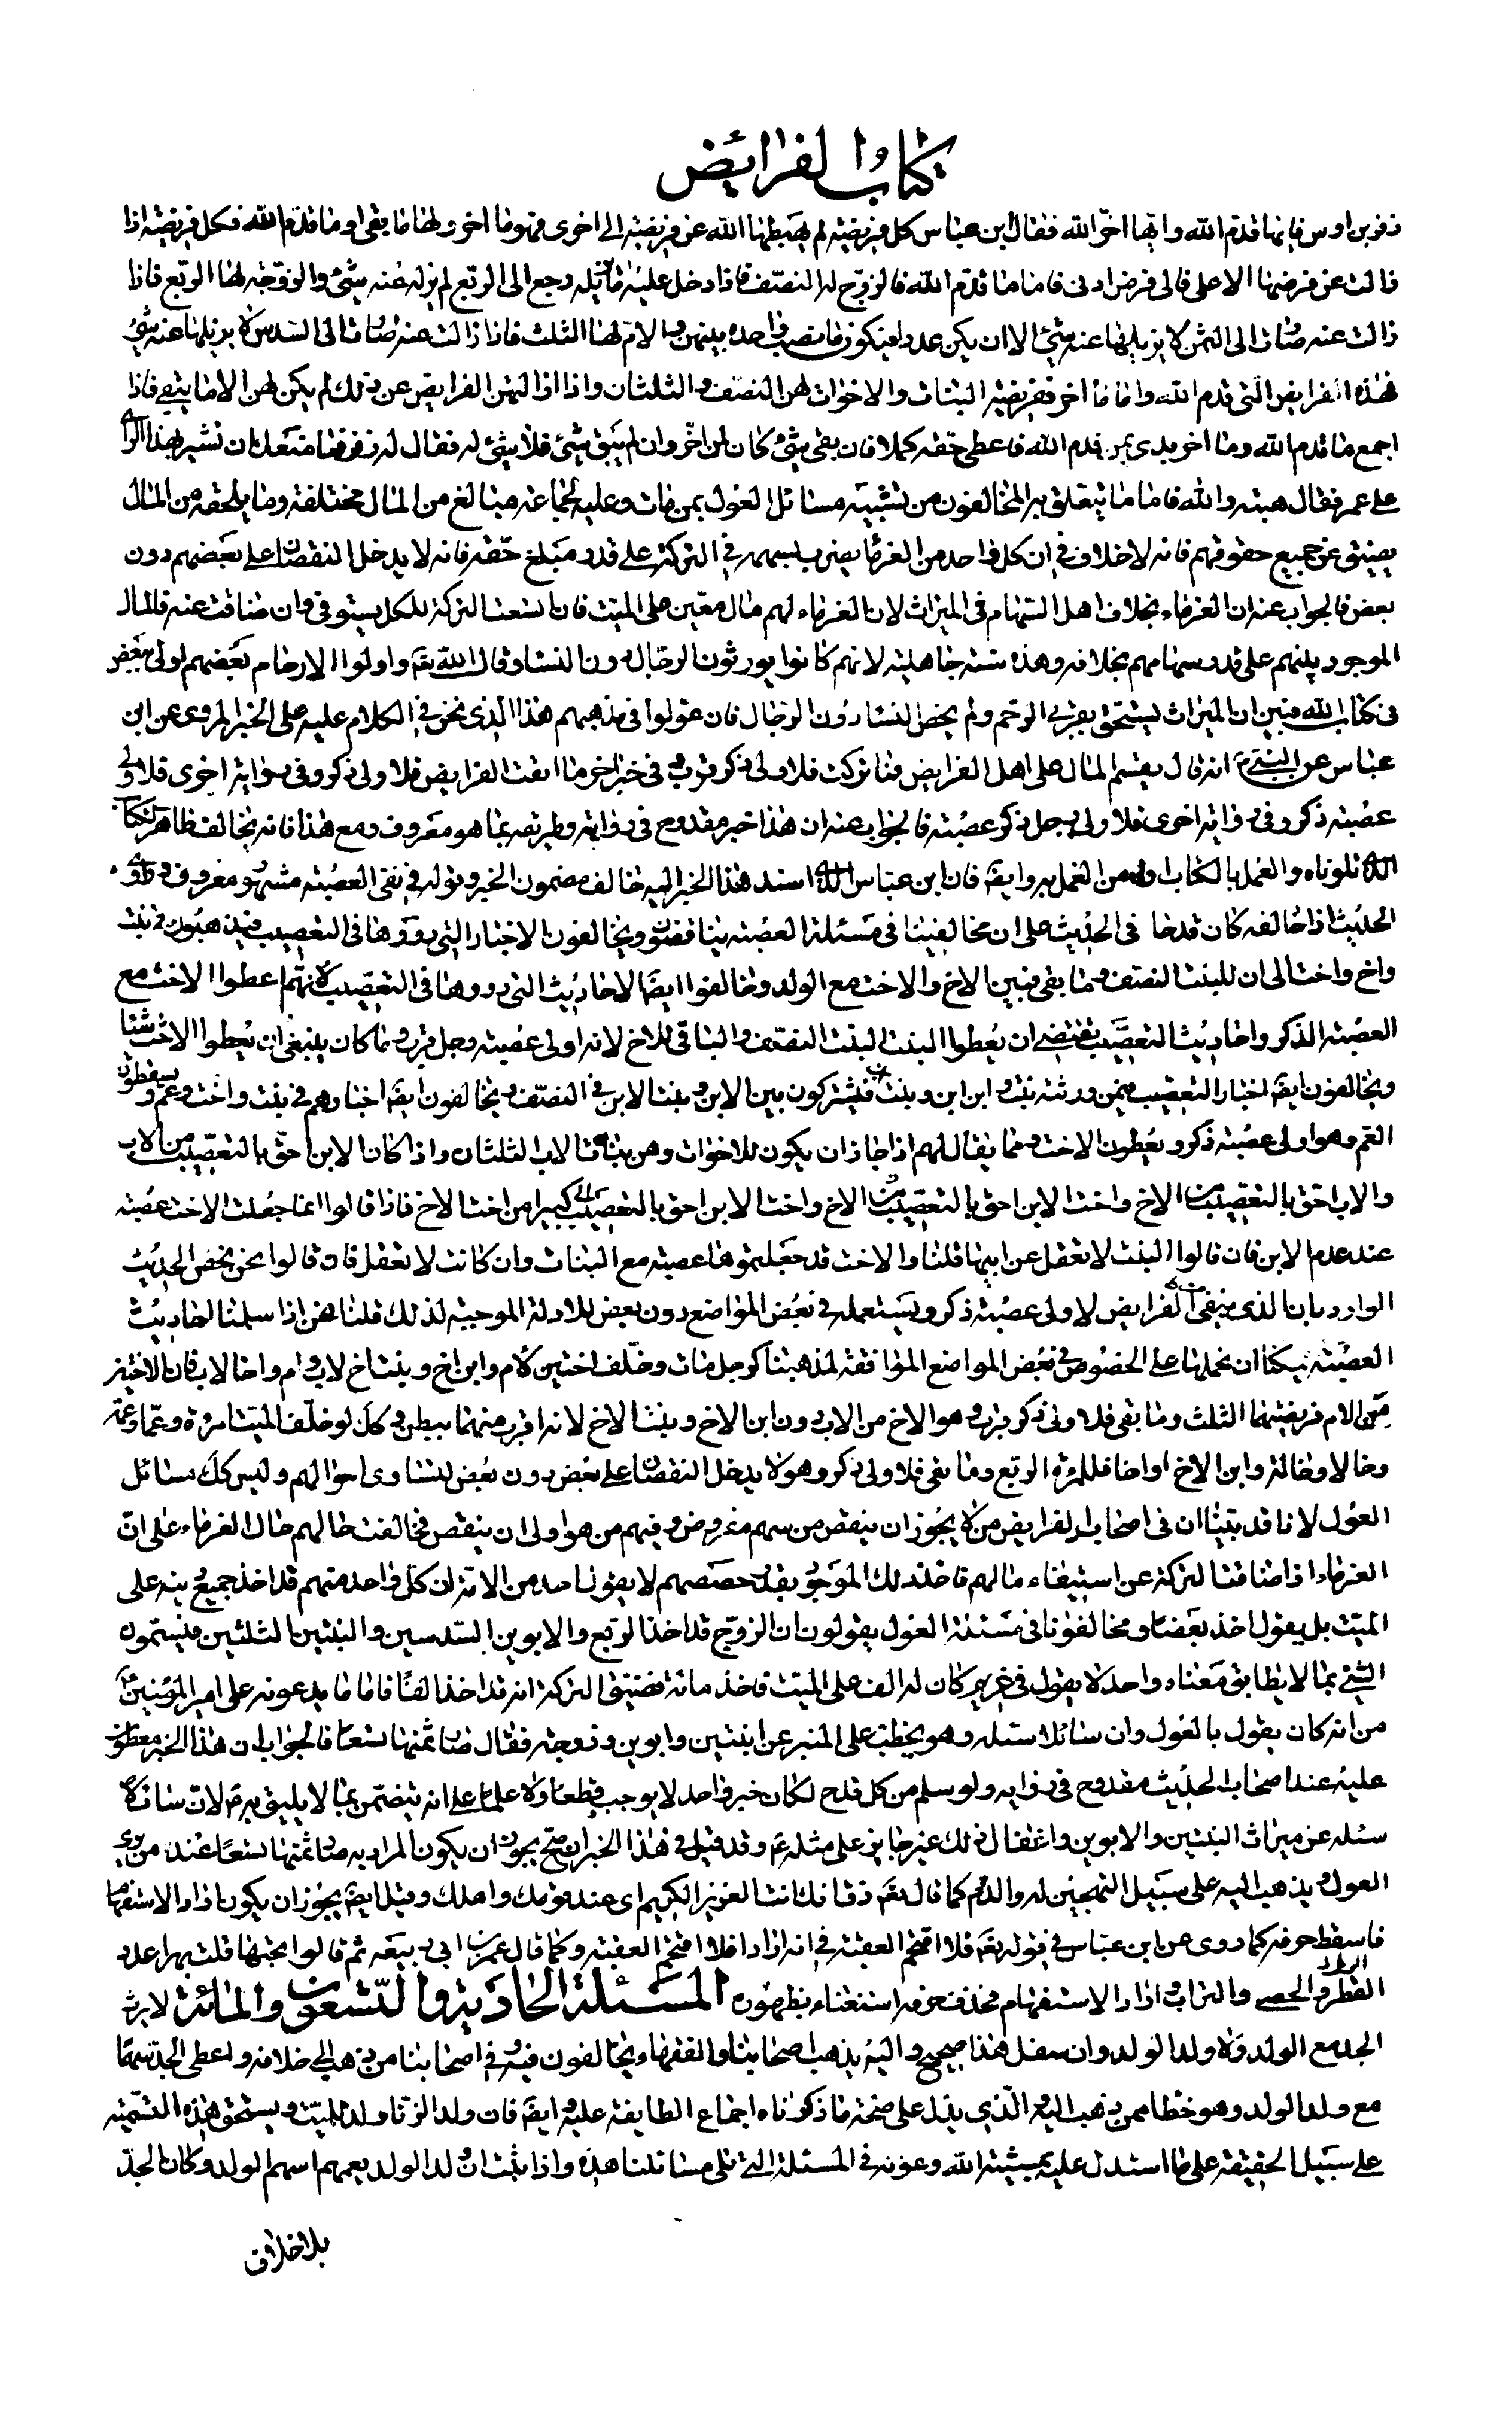 كتاب الفرائض
زفر بن اوس فايها قدم الله وايها اخر الله فقال ابن عباس كل فريضة لم يهبطها الله عن فريضة الى اخرى فهو ما اخر ولها ما بقى او ما قدم الله فكل فريضة اذا
زالت عن فرضها الاعلى فالى فرض ادنى فاما ما قدم الله فالزوج له النصف فاذا دخل عليه ما يزيله رجع الى الربع لم يزله عنه شئ والزوجة لها الربع فاذا
زالت عنه صارت الى الثمن لا يزيلها عنه شئ الا ان يكن عددا فيكون نصيب واحدة بينهن والام لها الثلث فاذا زالت عنه صارت الى السدس لا يزيلها عنه شئ
فهذه الفرايض التى قدم الله واما ما أخر ففريضة البنات والاخوات لهن النصف والثلثان واذا ازالتهن الفرايض عن ذلك لم يكن لهن الا ما يبقى فاذا
اجمع ما قدم الله وما اخر بدى بمن قدم الله فاعطى حقه كملا فان بقى شئ كان لمن اخر وان لم يبق شئ فلا شئ له فقال له زفر فما منعك ان تشير بهذا الراى
على عمر فقال هبته والله فاما ما يتعلق به المخالفون من تشبيه مسائل العول بمن مات وعليه لجماعة مبالغ من المال مختلفة وما يلحقه من المال
يضيق عن جميع حقوقهم فانه لا خلاف فى ان كل واحد من الغرماء يضرب بسهمه فى التركة على قدر مبلغ حقه فانه لا يدخل النقصان على بعضهم دون
بعض فالجواب عنه ان الغرماء بخلاف اهل السهام فى الميراث لان الغرماء لهم مال معين على الميت فان اتسعت التركة للكل يستوفى وان ضاقت عنه فالمال
الموجود بينهم على قدر سهامهم بخلافه وهذه سنة جاهلية لانهم كانوا يورثون الرجال دون النساء وقال الله تع واولوا الارحام بعضهم اولى ببعض
فى كتاب الله فبين ان الميراث يستحق بقربى الرحم ولم يخص النساء دون الرجال فان عولوا فى مذهبهم هذا الذى نحن فى الكلام عليه على الخبر المروى عن ابن
عباس عن النبى انه قال يقسم المال على اهل الفرايض فما تركت فلاولى ذكر قرب وفى خبر اخر ما ابقت الفرايض فلاولى ذكر وفى رواية اخرى فلاولى
عصبة ذكر وفى رواية اخرى فلاولى رجل ذكر عصبة فالجواب عنه ان هذا خبر مقدوح فى رواية وطريقه بما هو معروف ومع هذا فانه يخالف ظاهر الكتاب
الذى تلوناه والعمل بالكتاب اولى من العمل بروايته فان ابن عباس الذى اسند هذا الخبر اليه خالف مضمون الخبر وقوله فى نفى العصبة مشهور معروف وراوى
الحديث اذا خالفه كان قدحا فى الحديث على ان مخالفينا فى مسئلة العصبة يناقضون ويخالفون الاخبار التى رووها فى التعصيب فيذهبون فى بنت
واخ واخت الى ان للبنت النصف وما بقى فبين الاخ والاخت مع الولد وخالفوا ايضا الاحاديث التى رووها فى التعصيب لانهم اعطوا الاخت مع
العصبة الذكر واحاديث التعصيب يقتضى ان يعطوا البنت النصف والباقى للاخ لانه اولى عصبة رجل قرب وما كان ينبغى ان يعطوا الاخت شئا
ويخالفون ايضا اخبار التعصيب فيمن ورثته بنت وابن ابن وبنت ابن فيشركون بين الابن وبنت الابن فى النصف ويخالفون ايضا اخبارهم فى بنت واخت وعم ويسقطون
العم وهو اولى عصبة ذكر ويعطون الاخت ومما يقال لهم اذا جاز ان يكون للاخوات وهن بنات الاب الثلثان واذا كان الابن احق بالتعصيب من الاب
والاب احق بالتعصيب من الاخ واخت الابن احق بالتعصيب من الاخ واخت الابن احق بالتعصيب كبيرا من اخت الاخ فاذا قالوا انما جعلت الاخت عصبة
عند عدم الابن فان قالوا البنت لا تعقل عن ابيها قلنا والاخت قد جعلتموها عصبة مع البنات وان كانت لا تعقل فان قالوا نحن نخص الحديث
الوارد بان الذى يبقى الفرايض لاولى عصبة ذكر ويستعمله فى بعض المواضع دون بعض للادلة الموجبة لذلك قلنا نحن اذا سلمنا احاديث
العصبة يمكنا ان نحملها على الخصوص فى بعض المواضع الموافقة لمذهبنا كرجل مات وخلف اختين لام وابن اخ وبنت اخ لاب وام واخا لاب فان الاختين
من الام فريضتهما الثلث وما بقى فلاولى ذكر قرب وهو الاخ من الاب دون ابن الاخ وبنت الاخ لانه اقرب منهما ببطن وكك لو خلف الميت امرءة وعما وعمة
وخالا وخالة وابن الاخ او اخا فللمرءة الربع وما بقى فلاولى ذكر وهو لا يدخل النقصان على بعض دون بعض لتساوى احوالهم وليس كك مسائل
العول لانا قد بينا ان فى اصحاب الفرايض من لا يجوز ان ينقص من سهم مفروض وفيهم من هو اولى ان ينقص فخالفت حالهم حال الغرماء على ان
الغرماء اذا ضاقت التركة عن استيفاء مالهم فاخذ ذلك الموجود بقدر حصصهم لا يقول احد من الامة ان كل واحد منهم قد اخذ جميع دينه على
الميت بل يقول اخذ بعضا ومخالفونا فى مسئلة العول يقولون ان الزوج قد اخذ الربع والابوين السدسين والبنتين الثلثين فيسمون
الشئ بما لا يطابق معناه واحد لا يقول فى غريم كان له الف على الميت فاخذ مائة فضيق التركة انه قد اخذ الفا فاما ما يدعونه على امير المؤمنين
من انه كان يقول بالعول وان سائلا سئله وهو يخطب على المنبر عن ابنتين وابوين وزوجة فقال صار ثمنها تسعا فالجواب ان هذا الخبر مطعون
عليه عند اصحاب الحديث مقدوح فى رواية ولو سلم من كل قدح لكان خبر واحد لا يوجب قطعا ولا علما على انه يتضمن بما لا يليق به لان سائلا
سئله عن ميراث البنتين والابوين واغفال ذلك غير جايز على مثله وقد قيل فى هذا الخبر ان صح يجوز ان يكون المراد به صار ثمنها تسعا عند من يرى
العول ويذهب اليه على سبيل التهجين له والذم كما قال تع ذق انك انت العزيز الكريم اى عند قومك واهلك وقيل ايضا يجوز ان يكون اراد الاستفهام
فاسقط حرفه كما روى عن ابن عباس فى قوله تع فلا اقتحم العقبة فى انه اراد افلا اقتحم العقبة وكما قال عمر بن ابى ربيعة ثم قالوا تحبها قلت بهرا عدد
القطر والحصى والتراب واراد الاستفهام فحذف حرفه استغناء بظهوره المسئلة الحادية والتسعون والمائة لا يرث
الجد مع الولد ولا ولد الولد وان سفل هذا صحيح واليه يذهب اصحابنا والفقهاء يخالفون فيه وفى اصحابنا من يذهب الى خلافه واعطى الجد سهما
مع ولد الولد وهو خطا ممن ذهب اليه والذى يدل على صحة ما ذكرناه اجماع الطايفة عليه وايضا فان ولد الزنا ولد للميت ويستحق هذه التسمية
على سبيل الحقيقة على ما استدل عليه بمشيئة الله وعونه فى المسئلة التى تلى مسائلنا هذه واذا ثبت ان ولد الولد يعمهم اسم الولد وكان الجد
بلا خلاف